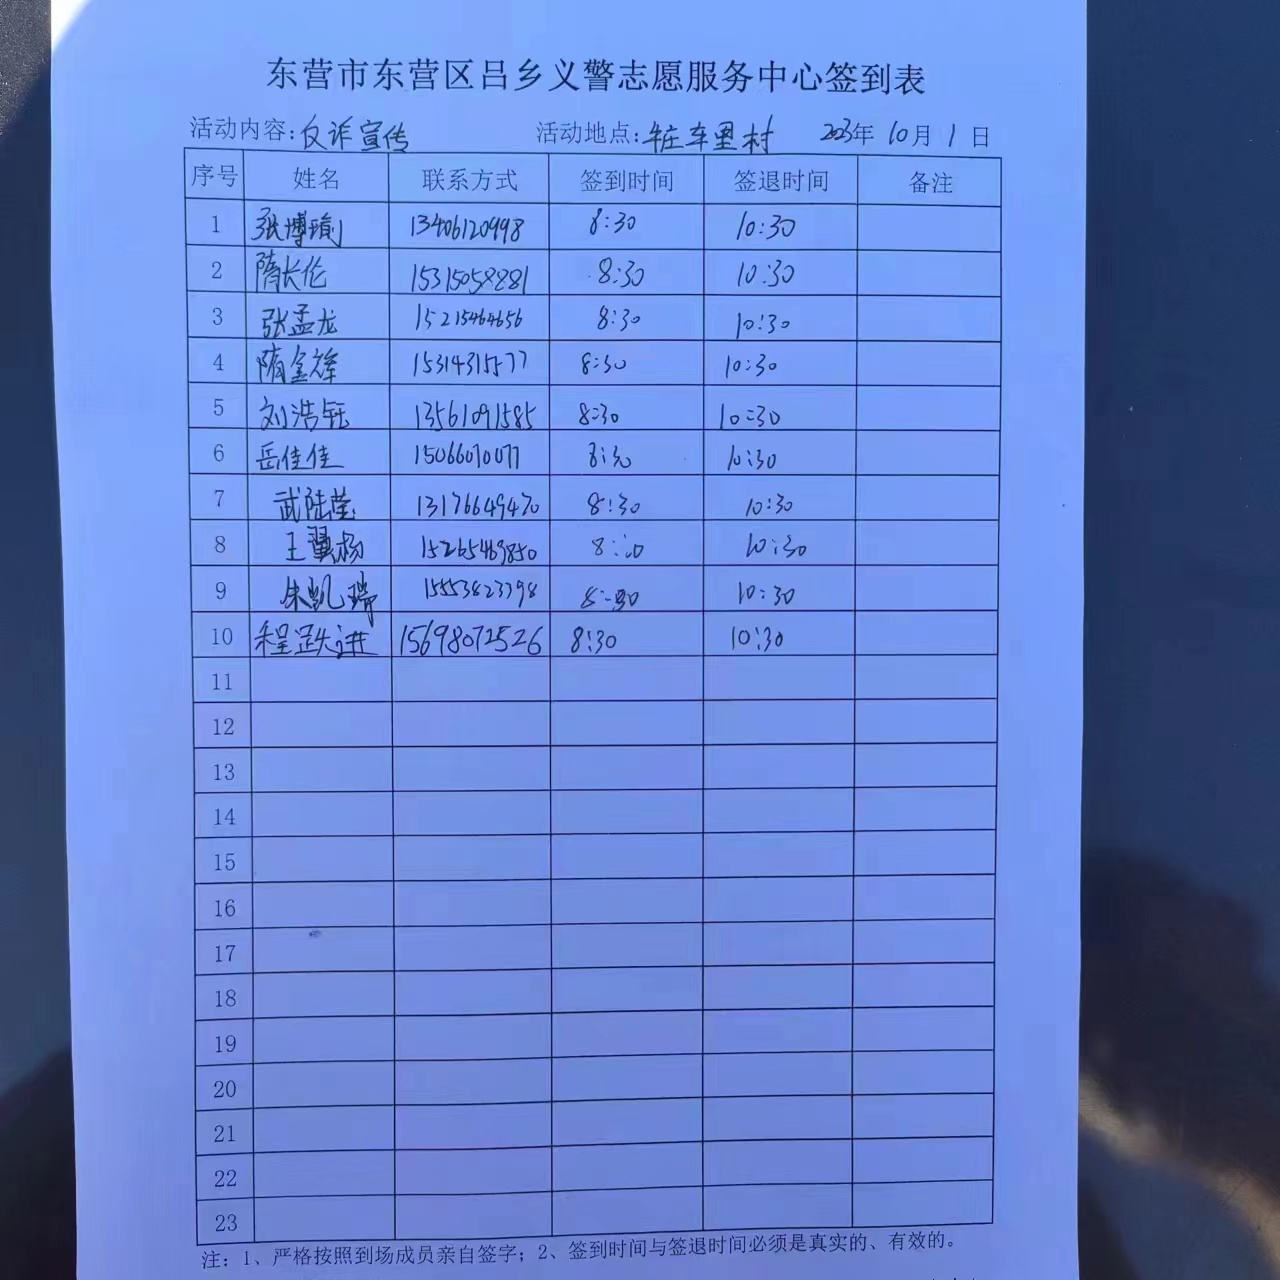 东营市东营区吕乡义警志愿服务中心签到表
活动内容:反诈宣传 活动地点:牛庄车里村 2023年10月1日
序号 姓名 联系方式 签到时间 签退时间 备注
1 张博瑜 13406120998 8:30 10:30
2 隋长伦 15315058881 8:30 10:30
3 张孟龙 15215464656 8:30 10:30
4 隋金锋 15314315577 8:30 10:30
5 刘浩钰 13561091585 8:30 10:30
6 岳佳佳 15066070077 8:30 10:30
7 武陆莹 13176649470 8:30 10:30
8 王翼杨 15265469850 8:30 10:30
9 朱凯瑞 15553823798 8:30 10:30
10 程跃进 15698072526 8:30 10:30
11
12
13
14
15
16
17
18
19
20
21
22
23
注：1、严格按照到场成员亲自签字；2、签到时间与签退时间必须是真实的、有效的。